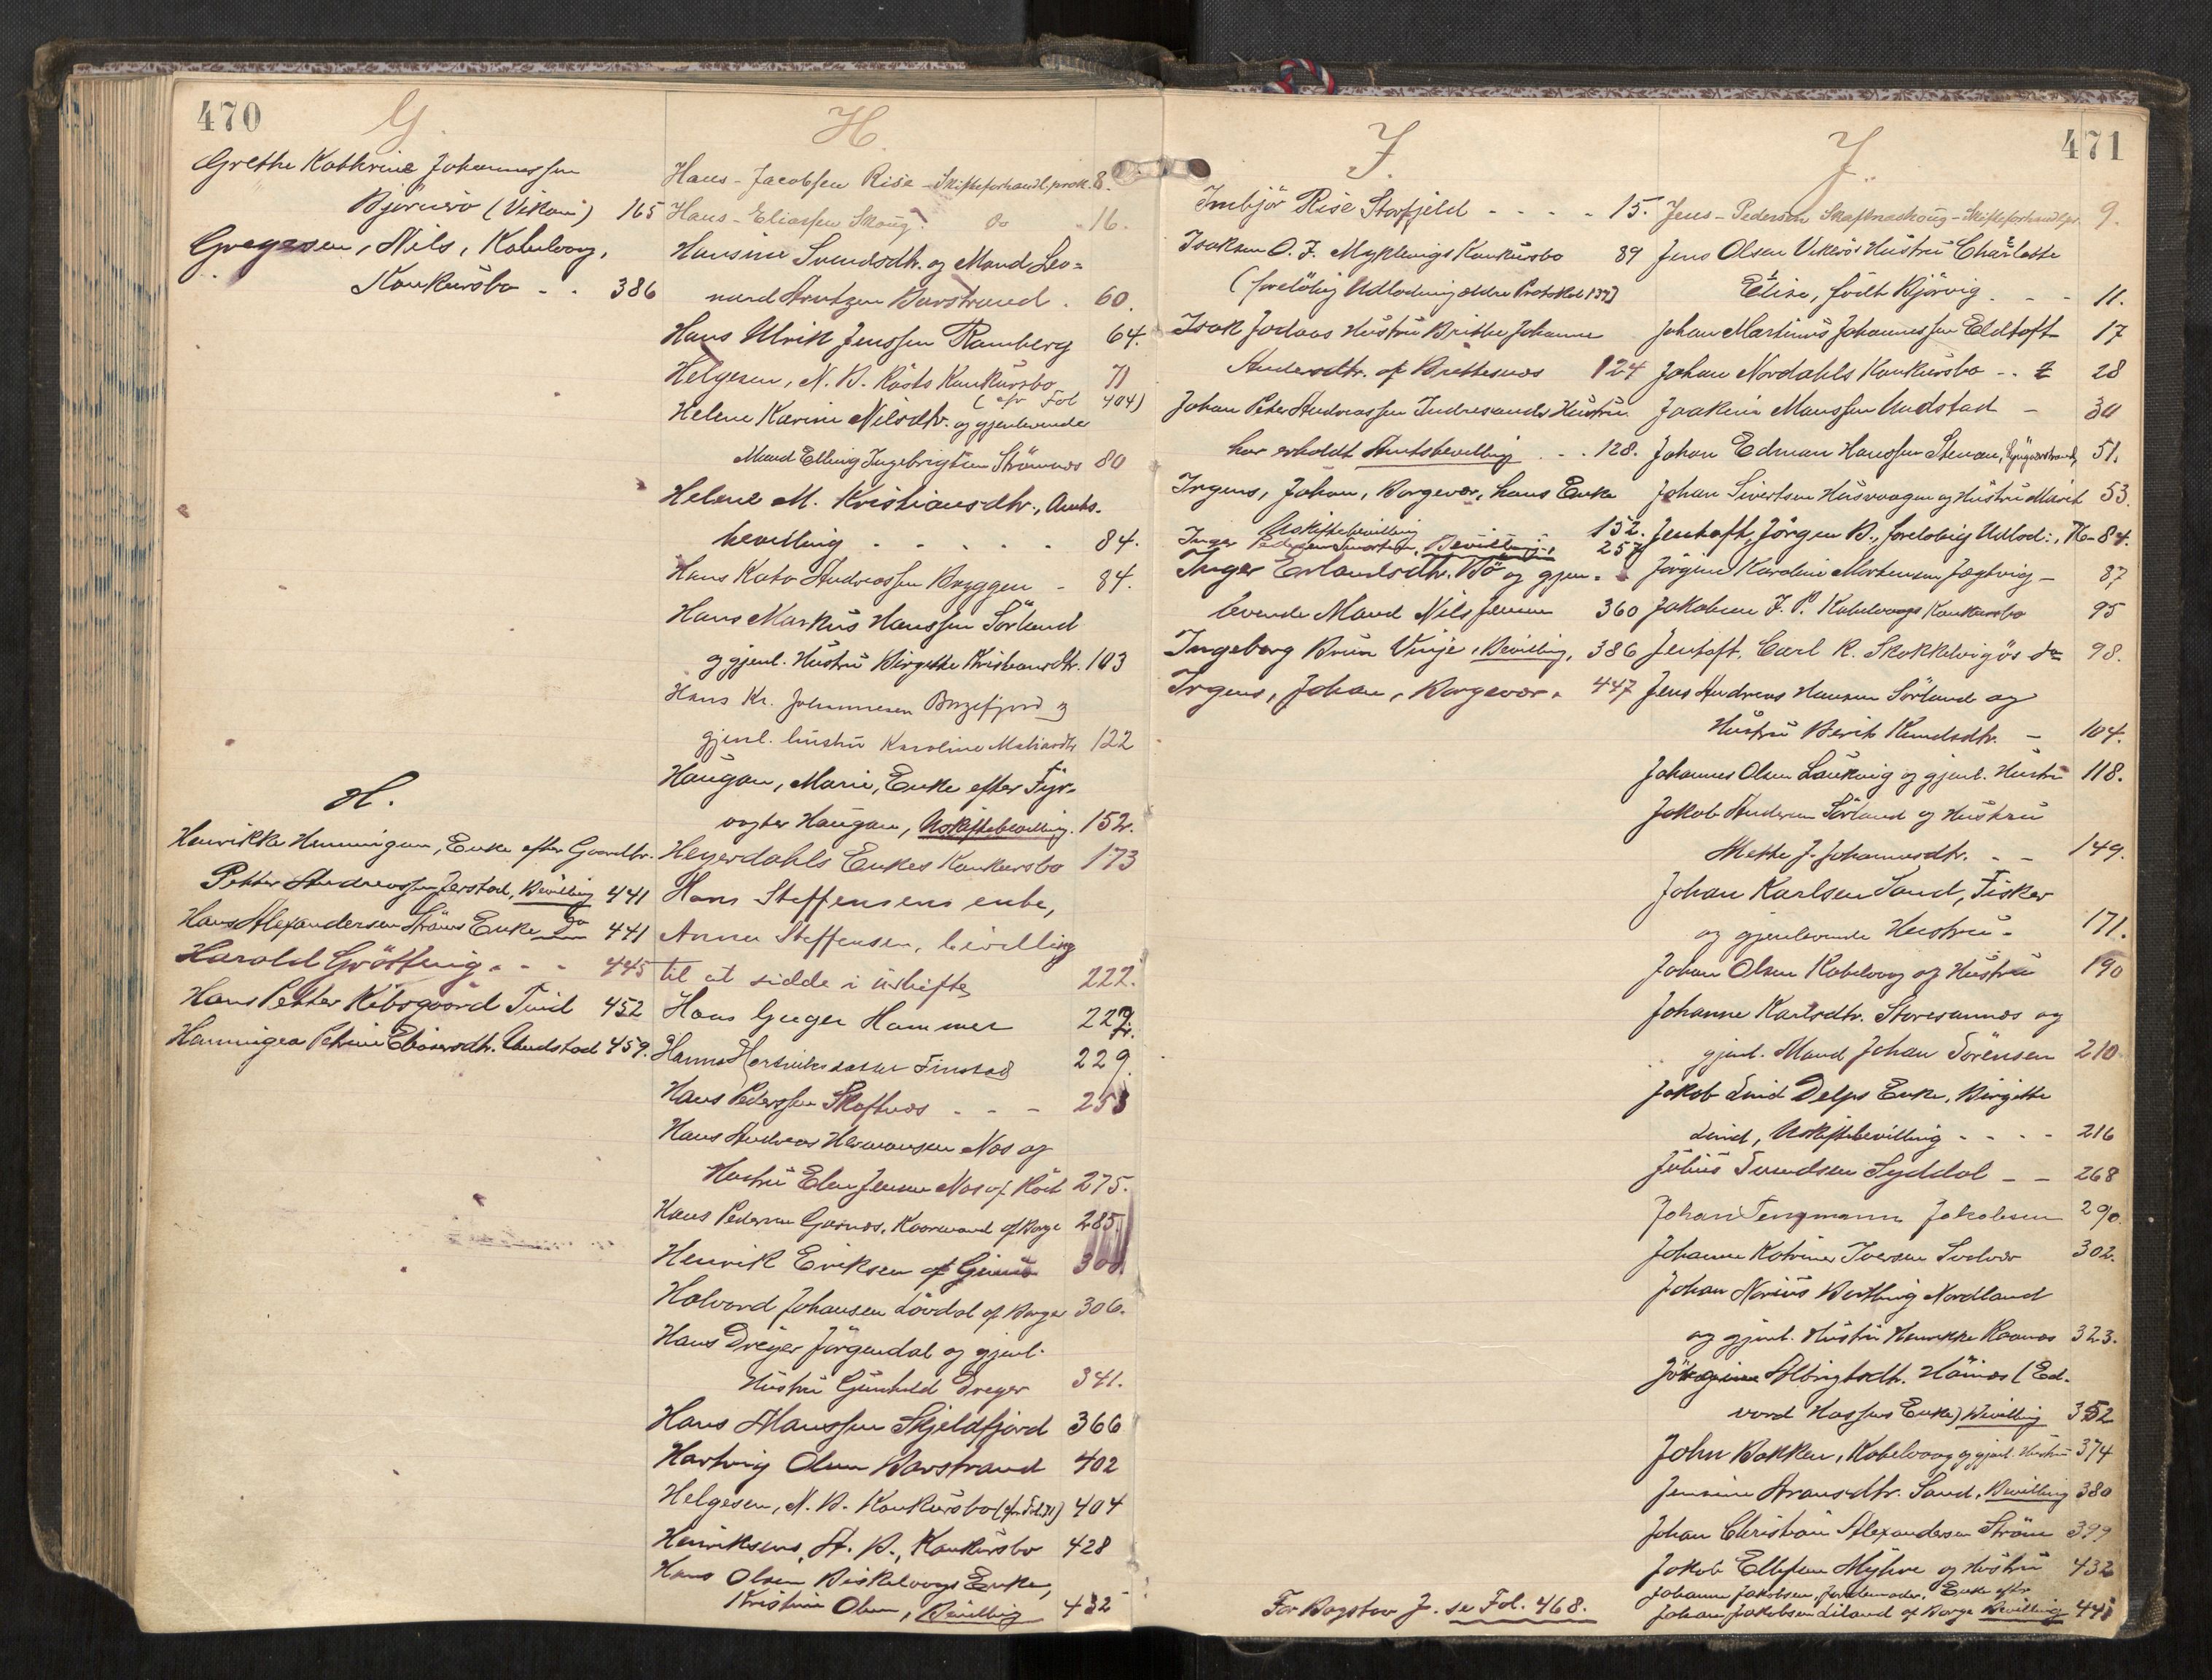 470
G.
Grethe Kathrine Johannessen
Björnerö (Vikan) 165
Gregesen, Nils, Kabelvaag,
Konkursbo - - 386
H.
Henrikke Henningsen, Enke efter Gaardbr.
Petter Andreassen Jerstad, Bevilling 441
Hans Alexandersen Ströms Enke do 441
Harald Gröttung - - - 445
Hans Petter Kibsgaard Tind 452
Henningea Petrine Eliasersdtr. Undstad 459.
H.
Hans - Jacobsen Rise - Skifteforhandl.prok. 8.
Hans - Eliassen Skoug. do 16.
Hansine Svendsdtr. og Mand Leo=
nard Arntzen Barstrand . 60.
Hans Ulrik Jenssen Ramberg 64.
Helgesen, N. B. Rösts Konkursbo 71
(cfr Fol 404)
Helene Karine Nilsdtr. og gjenlevende
Mand Elling Ingebrigtsen Strömnes 80
Helene M. Kristiansdtr., Amts-
bevilling - - - - - 84.
Hans Kato Andreassen Bryggen - 84.
Hans Markus Hanssen Sörland
og gjenl. Hustru Birgethe Kristiansdtr. 103
Hans Kr. Johannesen Borgefjord og
gjenl. hustru Karoline Matiasdtr 122
Haugan, Marie, Enke efter Fyr-
vogter Haugan, Uskiftebevilling. 152.
Heyerdahls Enkes Konkursbo 173
Hans Steffensens enke,
Anna Steffensen, bevilling
til at sidde i uskifte 222.
Hans Greger Hammer 227
Hanna Finstad 229.
Hans Pederssen Skaftnes - - - 253
Hans Andreas Hermansen Nes og
Hustru Elen Jensen Nes af Röst 275.
Hans Pedersen Gaanes, Kaarmand af Borge 285.
Henrik Eriksen af Gimsö 300.
Halvard Johansen Lövdal af Borge 306.
Hans Dreyer Jörgendal og gjenl.
Hustru Gunhild Dreyer 341.
Hans Maussen Skjeldfjord 366
Hartvig Olsen Barstrand 402
Helgesen, N. B. Konkursbo (cfr Fol 71) 404
Henriksens, A. B., Konkursbo 428
Hans Olsen Piskelvaags Enke,
Kristine Olsen, Bevilling 432
471
I.
Imbjör Rise Storfjeld - - - - 15.
Isaksen O. J. Myklevigs Konkursbo 89
(foreløbig Udlodning ældre Protokol 137)
Isak Jodaas Hustru Brithe Johanne
Andersdtr. af Brettesnes 124
Johan Peter Andreassen Indresands Hustru
har erholdt Amtsbevilling - - 128.
Irgens, Johan, Borgevær, hans Enke
Uskiftebevilling 152.
Inger Pedersen Smorten, Bevilling, 257
Inger Erlandsdtr. Bö og gjen-
levende Mand Nils Jensen 360
Ingeborg Brun Vinje, Bevilling, 386
Irgens, Johan, Borgevær. 447
For Bogstav J. se Fol. 468.
J.
Jens - Pedersen Skaftneskoug - Skifteforhandl.pr. 9.
Jens Olsen Vikerös Hustru Charlotte
Elise, född Kjörvig - - - 11.
Johan Martinus Johannessen Eldtoft 17
Johan Nordahls Konkursbo - - 28
Joakim Maussen Undstad - 30
Johan Edman Hanssen Stenan, Lyngværstrand, 51.
Johan Sivertsen Husvaagen og Hustru Marit 53.
Jentoft, Jörgen B., foreløbig Udlod:, 76-84.
Jörgine Karoline Mortensen Jagtvig - 87
Jakobsen J. P. Kabelvaags Konkursbo 95
Jentoft, Carl R. Skokkelvigös do 98.
Jens Andreas Hansen Sörland og
Hustru Berit Knudsdtr. - 104.
Johannes Olsen Laukvig og gjenl. Hustru 118.
Jakob Andersen Sörland og Hustru
Mette J. Johannesdtr. - - 149.
Johan Karlsen Sand, Fisker
og gjenlevende Hustru - 171.
Johan Olsen Kabelvaag og Hustru 190
Johanne Karlsdtr. Storesannes og
gjenl. Mand Johan Sörensen 210
Jakob Lind Delps Enke, Birgitte
Lind, Uskiftebevilling - - - - 216
Julius Svendsen Syddal - - 268
Johan Tengmann Jakobsen 290.
Johanne Katrine Iversen Svolvær 302.
Johan Norius Berthing Nordland
og gjenl. Hustru Henrikke Raanes 323.
Jörgine Albrigtsdtr. Haunes (Ed-
vard Hassens Enke) Bevilling 352
John Bakken, Kabelvaag og gjenl. Hustru 374
Jensine Aronsdtr. Sand, Bevilling 380
Johan Christian Alexandersen Ström 399
Jakob Ellefsen Myhre og Hustru 432
Johanne Jakobsen, Jordemoder, Enke efter
Johan Jakobsen Liland af Borge Bevilling 441